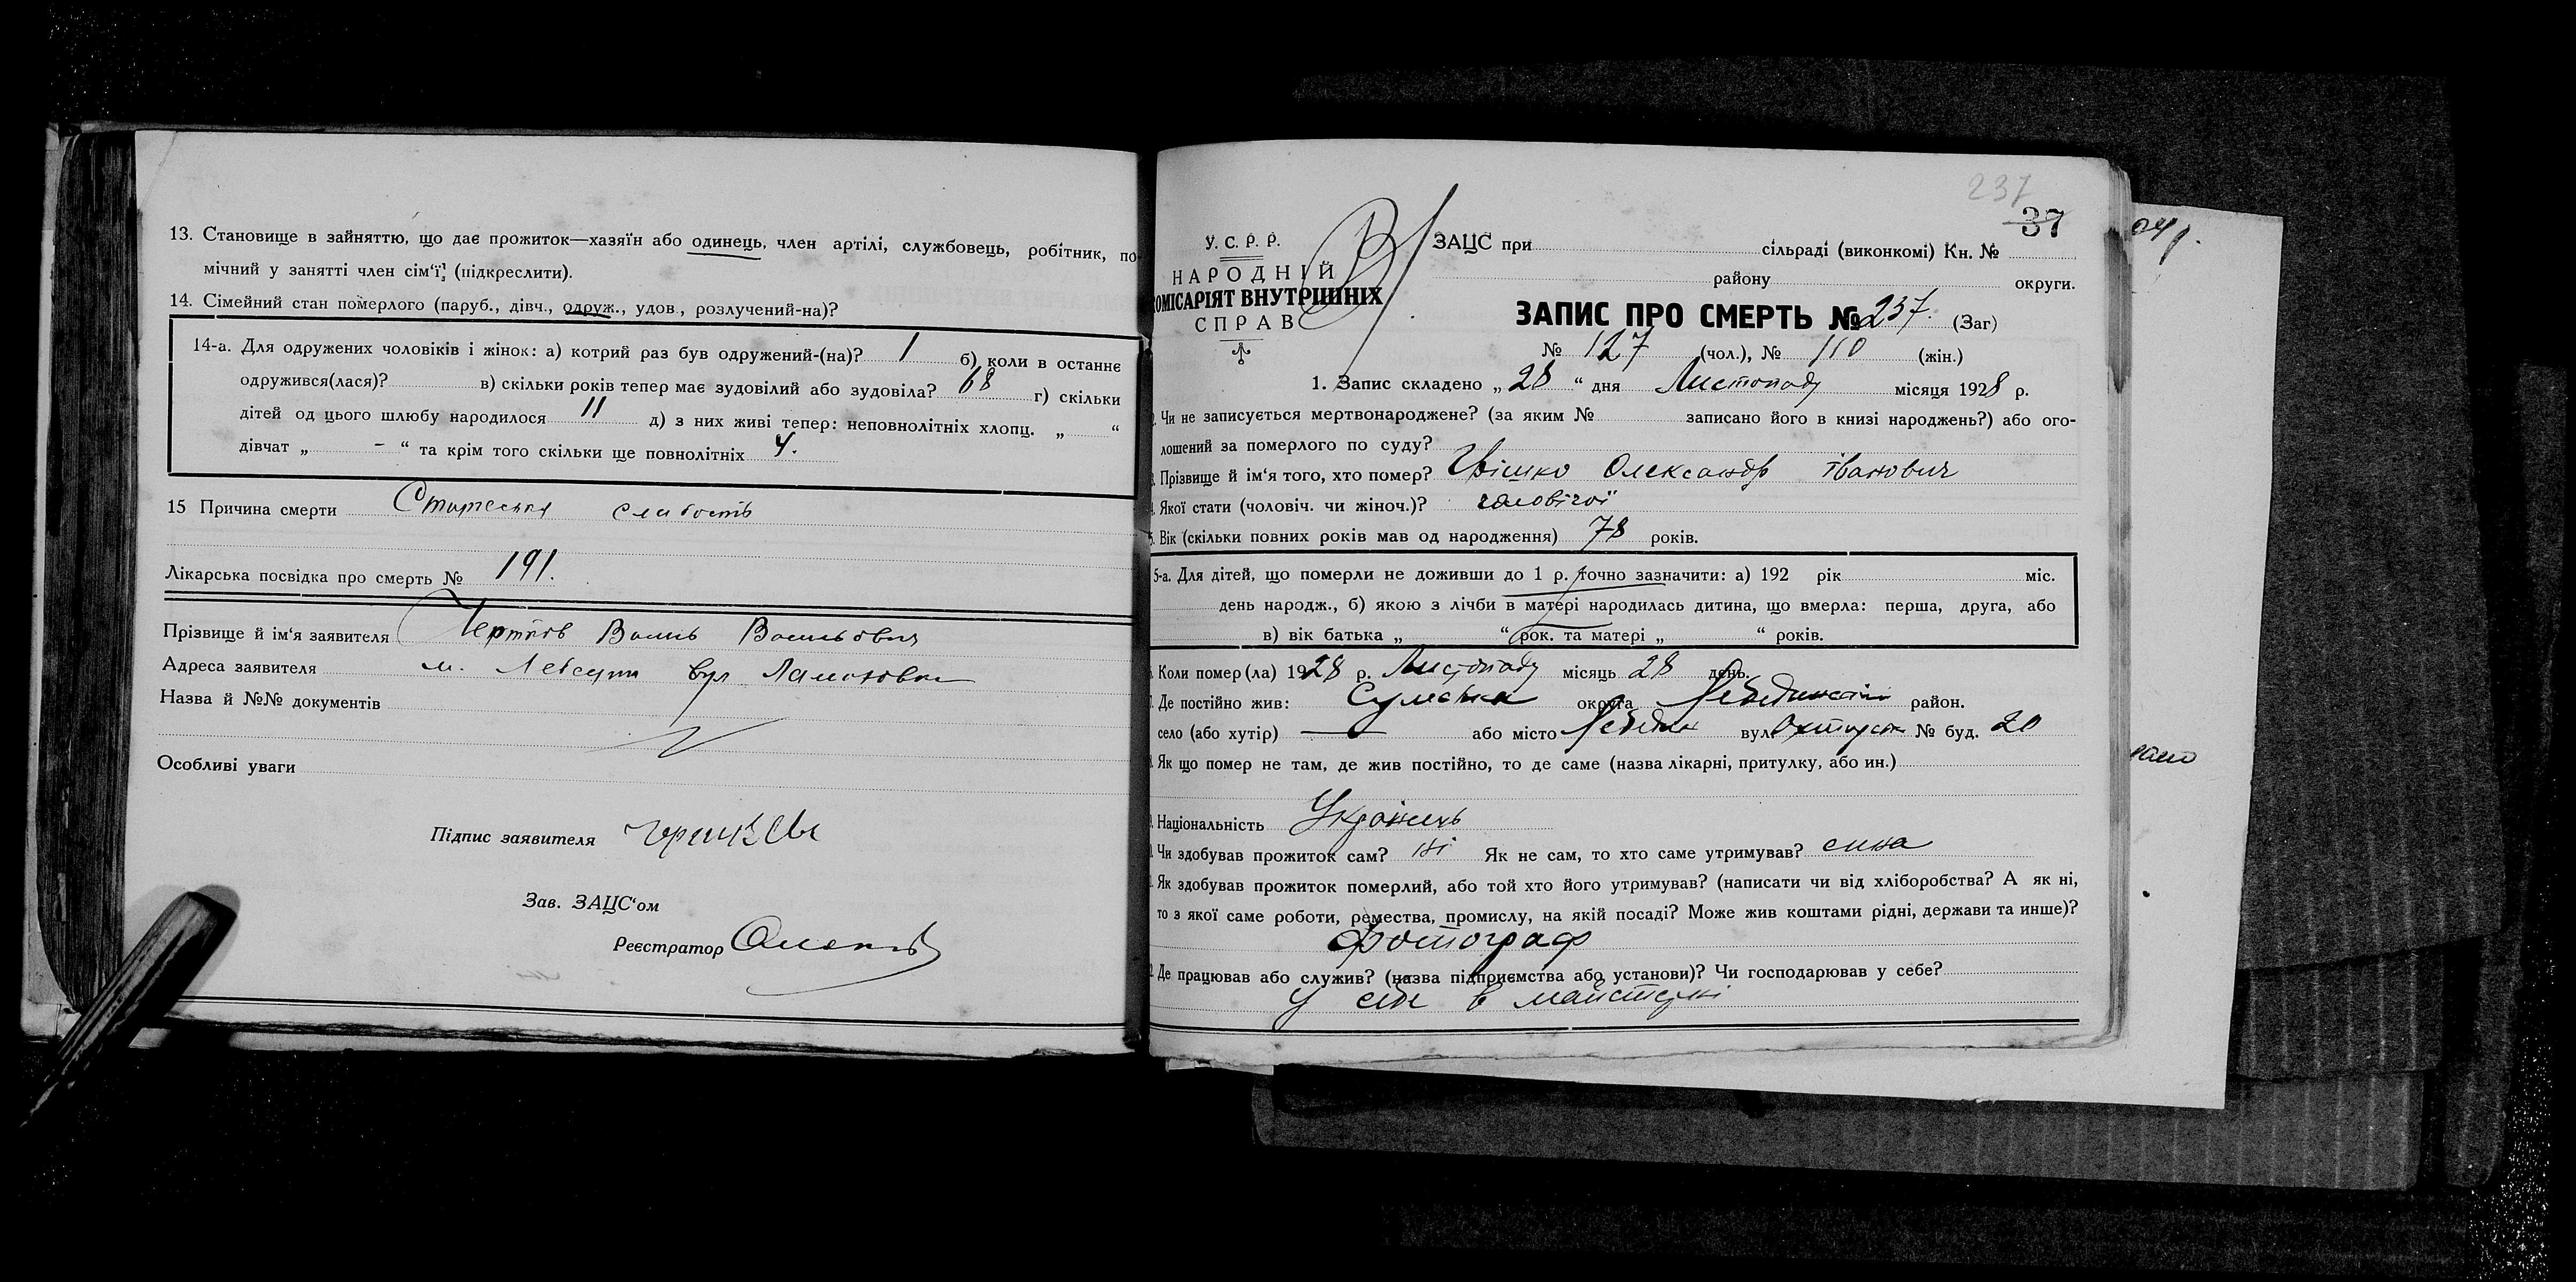 13. Становище в зайняттю, що дає прожиток—хазяїн або одинець, член артілі, службовець, робітник, по-
мічний у занятті член сім‘ї (підкреслити).
14. Сімейний стан померлого (паруб., дівч., одруж., удов., розлучений-на)?
14-а. Для одружених чоловіків і жінок: а) котрий раз був одружений-(на)? 1 б) коли в останнє
одружився(лася)? в) скільки років тепер має зудовілий або зудовіла? 68 г) скільки
дітей од цього шлюбу народилося 11 д) з них живі тепер: неповнолітніх хлопц. „ “
дівчат „ – “ та крім того скільки ще повнолітніх 4.
15 Причина смерти Старческая слабость
Лікарська посвідка про смерть № 191.
Прізвище й ім‘я заявителя
Адреса заявителя м. вул
Назва й №№ документів
Особливі уваги
Підпис заявителя
Зав. ЗАЦС‘ом
Реєстратор
237
37
У. С. Р. Р.
НАРОДНІЙ
ОМІСАРІЯТ ВНУТРІШНІХ
СПРАВ
ЗАЦС при сільраді (виконкомі) Кн. №
району округи.
ЗАПИС ПРО СМЕРТЬ № 237. (Заг)
№ 127 (чол.), № 110 (жін.)
1. Запис складено „ 28 “ дня Листопаду місяця 1928 р.
Чи не записується мертвонароджене? (за яким № записано його в книзі народжень?) або ого-
лошений за померлого по суду?
Прізвище й ім‘я того, хто помер? Олександр Іванович
Якої стати (чоловіч. чи жіноч.)? чоловічої
5. Вік (скільки повних років мав од народження) 78 років.
5-а. Для дітей, що померли не доживши до 1 р. точно зазначити: а) 192 рік міс.
день народж., б) якою з лічби в матері народилась дитина, що вмерла: перша, друга, або
в) вік батька „ “ рок. та матері „ “ років.
Коли помер(ла) 1928 р. Листопаду місяць 28 день.
Де постійно жив: Сумська округа Лебединский район.
село (або хутір) — або місто Лебедин вул № буд. 20
Як що помер не там, де жив постійно, то де саме (назва лікарні, притулку, або ин.)
Національність Українець
Чи здобував прожиток сам? ні Як не сам, то хто саме утримував? сина
Як здобував прожиток померлий, або той хто його утримував? (написати чи від хліборобства? А як ні,
то з якої саме роботи, ремества, промислу, на якій посаді? Може жив коштами рідні, держави та инше)?
фотограф
Де працював або служив? (назва підприємства або установи)? Чи господарював у себе?
у себе в майстерні